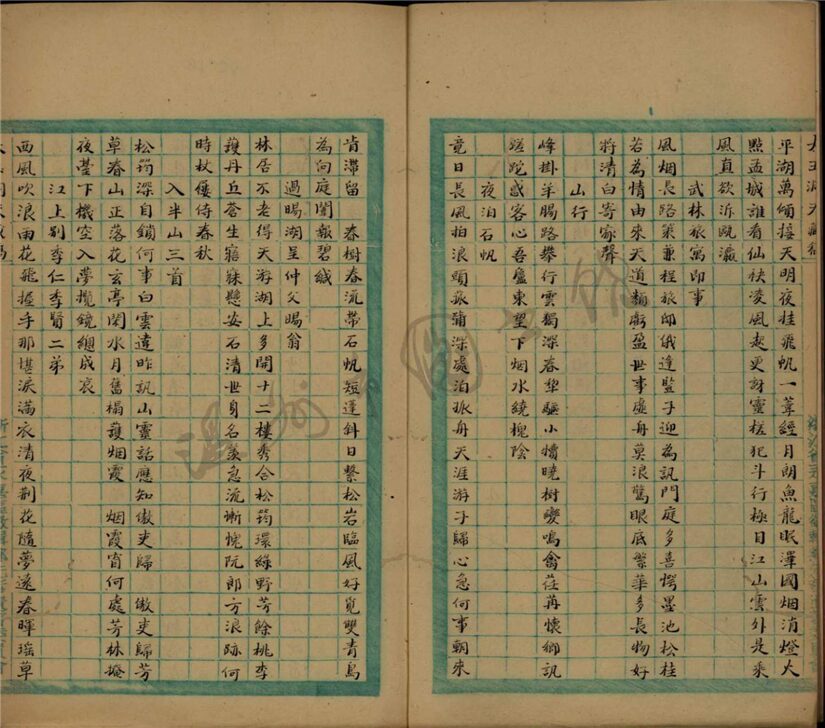 平湖萬傾接天明夜挂飛帆一葦經月朗魚龍眠澤國烟消燈火
點孟城誰看仙袂淩風起更訝靈槎犯斗行極目江山雲外是乘
風直欲泝甌瀛
武林旅寓即事
風烟長路策兼程旅邸俄逢豎子迎為訊門庭多喜愕墨池松桂
若為情由來天道虧盈世事虛舟莫浪驚眼底繁華多長物好
將清白寄家聲
山行
峰掛羊腸路攀行雲獨深春犂驅小犢曉樹變鳴禽荏苒懷鄉訊
蹉跎感客心吾廬東望下烟水繞槐陰
夜泊石帆
竟日長風拍浪頭菰蒲深處泊孤舟天涯游子歸心急何事朝來
肯滯留 春樹春流帶石帆短蓬斜日繫松岩臨風好覓雙青鳥
為向庭闈報碧緘
過暘湖呈仲父暘翁
林居不老得天游湖上多開十二樓秀合松筠環綠野芳餘桃李
護丹丘蒼生寤寐懸安石清世身名羨急流慚愧阮郎方浪跡何
時杖僂侍春秋
入半山三首
松筠深自鎖何事白雲違昨訊山靈話應知傲吏歸 傲吏歸芳
草春山正落花玄亭閑水月舊榻護烟霞 烟霞宿何處芳林掩
夜臺下機空入夢攬鏡總成哀
江上別季仁季賢二弟
西風吹浪雨花飛握手那堪淚滿衣清夜荆花隨夢遠春暉瑤草